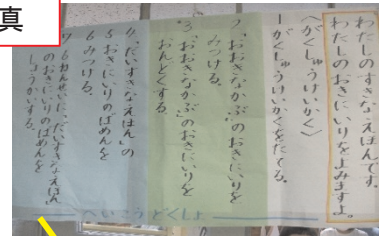 真
わたしのすきなえほんです。
わたしのおきにいりをよみますよ。
〈がくしゅうけいかく〉
1 がくしゅうけいかくをたてる。
2 「おおきなかぶ」のおきにいりを
みつける。
3 「おおきなかぶ」のおきにいりを
おんどくする。
4 「だいすきなえほん」の
5 おきにいりのばめんを
6 みつける。
7 6ねんせいに、「だいすきなえほん」
のおきにいりのばめんを
しょうかいする。
へいこうどくしょ